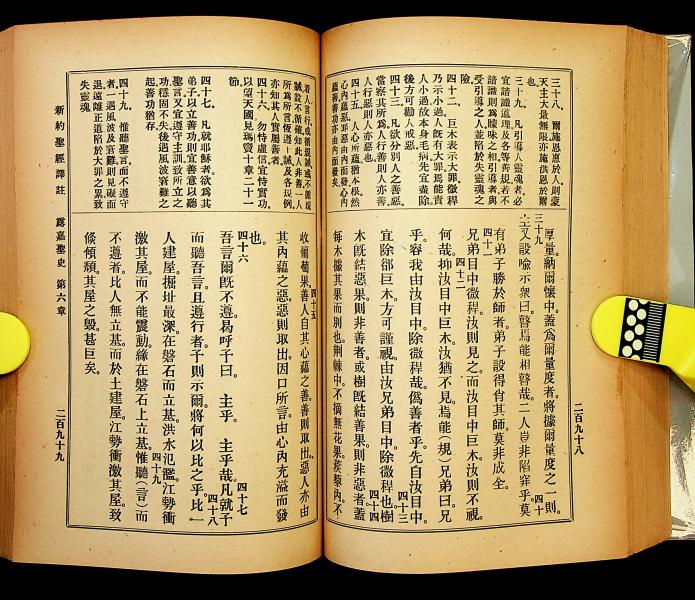 三十八　爾施恩惠於人則蒙
天主大量無限亦施洪恩於爾
也。
三十九　凡引導人靈魂者必
宜諳識道理及各等善規若不
諳識則爲矇昧之相引導者與
受引導之人並陷於失靈魂之
險。
四十二　巨木表示大罪微稈
乃示小過人旣有大罪焉能責
人小過故本身毛病先宜盡除
後方可勸人戒惡。
四十三　凡欲分別人之善惡
當察其所爲人行善則人亦善
人行惡則人亦惡也。
四十五　人心所蘊猶木根然
心內蘊惡罪惡由內而發心內
蘊善善功亦由內而發矣。
厚量。納爾懷中。蓋爲爾量度者。將據爾量度之一則。
三十九
四十
主又設喻示衆曰。瞽焉能相瞽哉。二人豈非陷穽乎。莫
有弟子勝於師者。弟子設得肖其師。莫非成全。
四十一
兄弟目中微稈。汝則見之。而汝目中巨木。汝則不視。
四十二
何哉。抑汝目中巨木。汝猶不見。焉能(規)兄弟曰。兄
乎。容我由汝目中除微稈哉。僞善者乎。先自汝目中。
四十三
宜除郤巨木。方可謹視。由汝兄弟目中除微稈也。樹
四十四
木旣結惡果。則非善者。或樹旣結善果。則非惡者。蓋
每木據其果而別也。荊棘中。不摘無花果。蒺藜內。不
二百九十八
若人言行。或循規誡或不循規
誡設不循確知此人非善。人
所爲所言恆遵十誡及各規例
亦知其人實屬善者。
四十六　勿恃虛信宜恃實功
以望天國見瑪竇十章二十一
節。
四十七　凡就耶穌者欲爲其
弟子以立善功則宜善意以聽
聖言又宜遵守主訓致所立之
功穩固不失後遇風波窘難之
起善功猶存。
四十九　惟聽聖言而不遵守
者一遇風波及窘難則見礙而
退遠離正道陷於大罪之累致
失靈魂。
收葡萄果。善人自其心蘊之善。善則取出。惡人亦由
四十五
其內蘊之惡。惡則取出。因口所言。由心內充溢而發
也。
四十六
吾言爾旣不遵。曷呼予曰。主乎。　主乎哉。凡就予
四十七
而聽吾言。且遵行者。予則示爾將何以比之乎。比一
四十八
人建屋。掘坩最深。在磐石而立基。洪水氾濫。江勢衝
激其屋。而不能震動。緣在磐石上立基。惟聽(言)而
四十九
不遵者。比人無立基。而於土建屋。江勢衝激其屋。致
倏傾頹。其屋之毀。甚巨矣。
新約聖經譯註　露嘉聖史　第六章
二百九十九